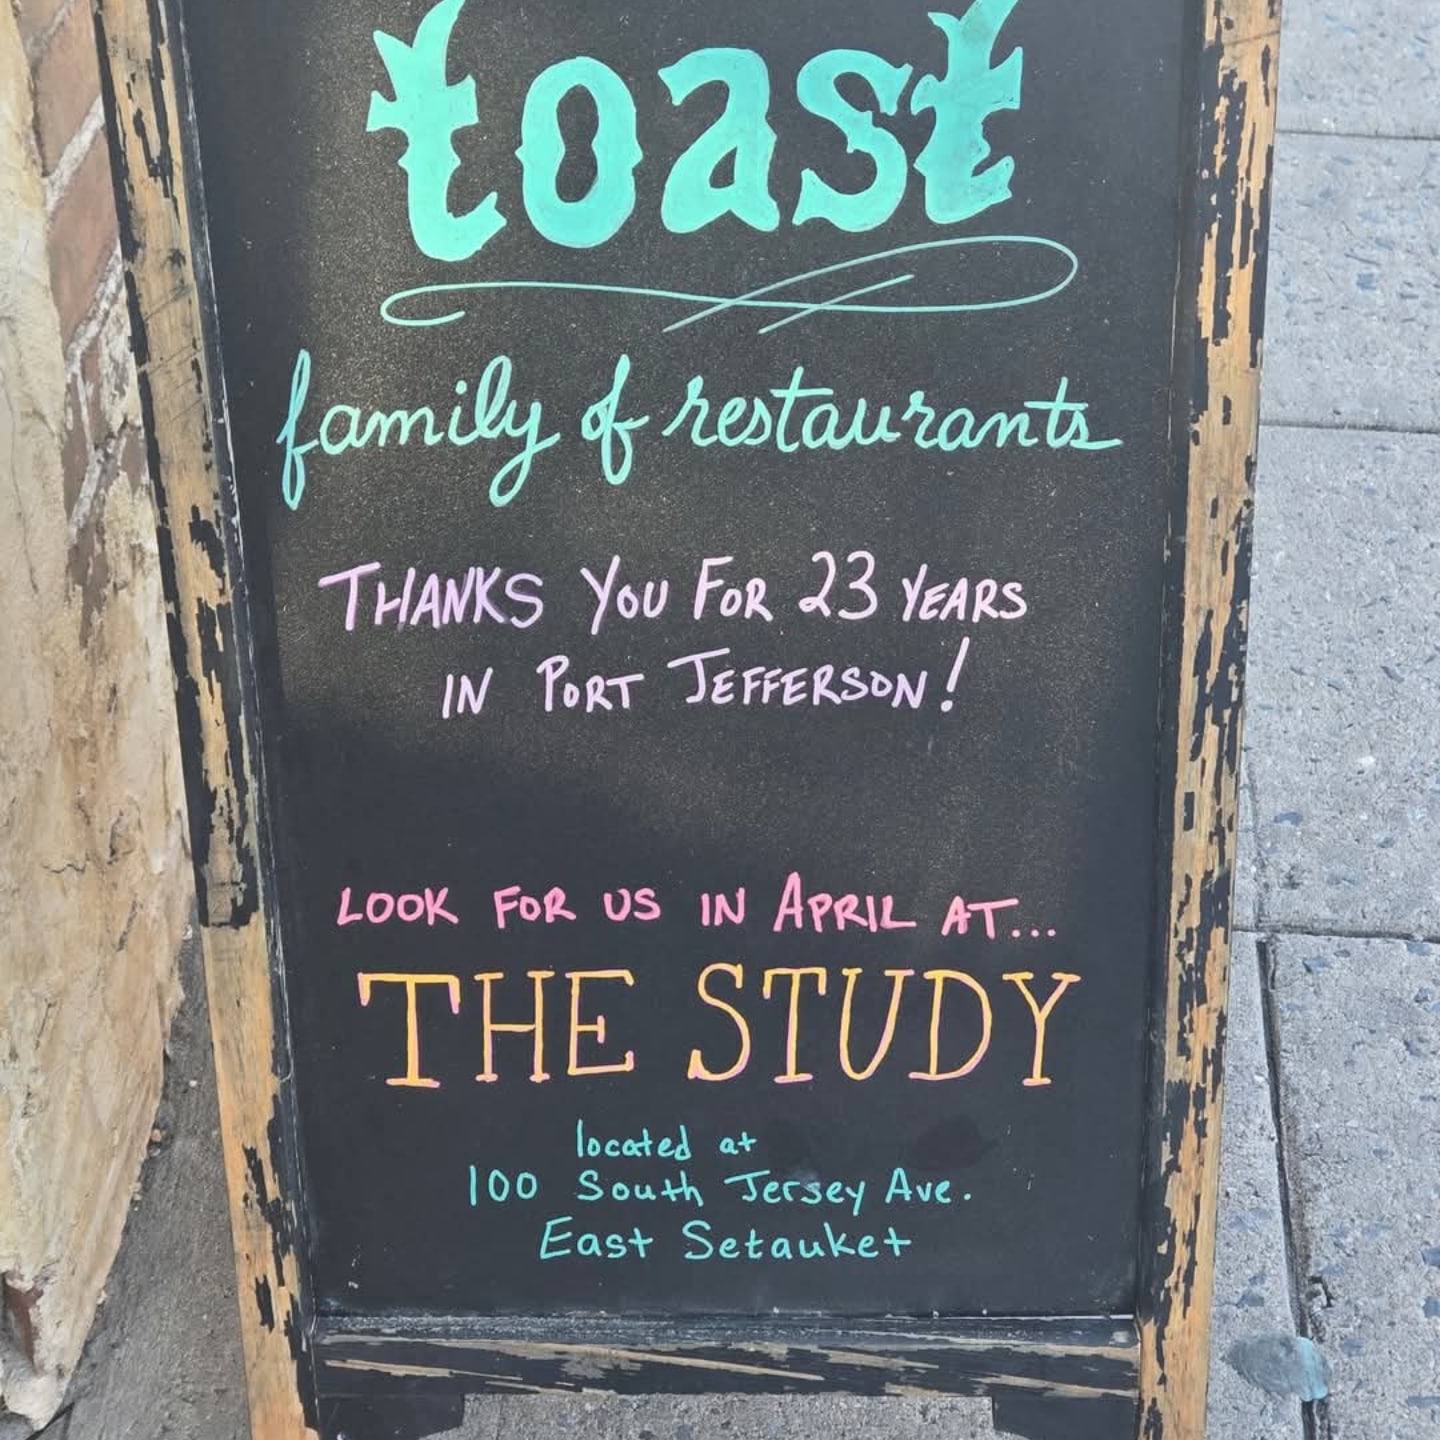 toast
family of restaurants
THANKS YOU FOR 23 YEARS
IN PORT JEFFERSON!
LOOK FOR US IN APRIL AT...
THE STUDY
located at
100 South Jersey Ave.
East Setauket